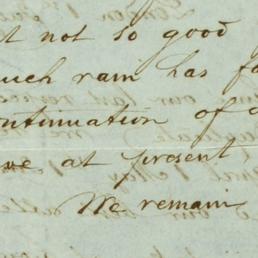 t not so good
uch rain has fa
ontinuation of
ve at present
We remain